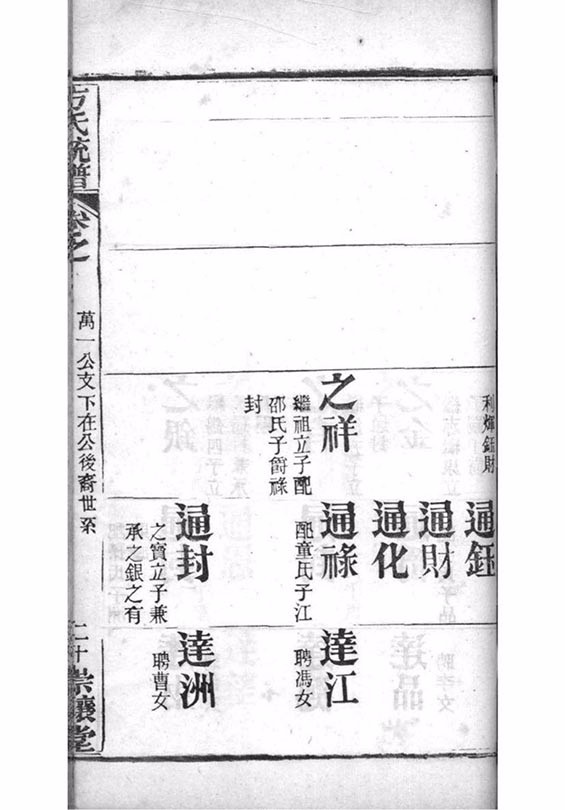 利煇鈺財
通鈺
通財
通化
之祥
繼祖立子配
邵氏子爵祿
封
通祿
配童氏子江
達江
聘馮女
通封
之寶立子兼
承之銀之有
達洲
聘曹女
方氏統譜
卷之
萬一公文下在公後裔世系
二十
崇讓堂